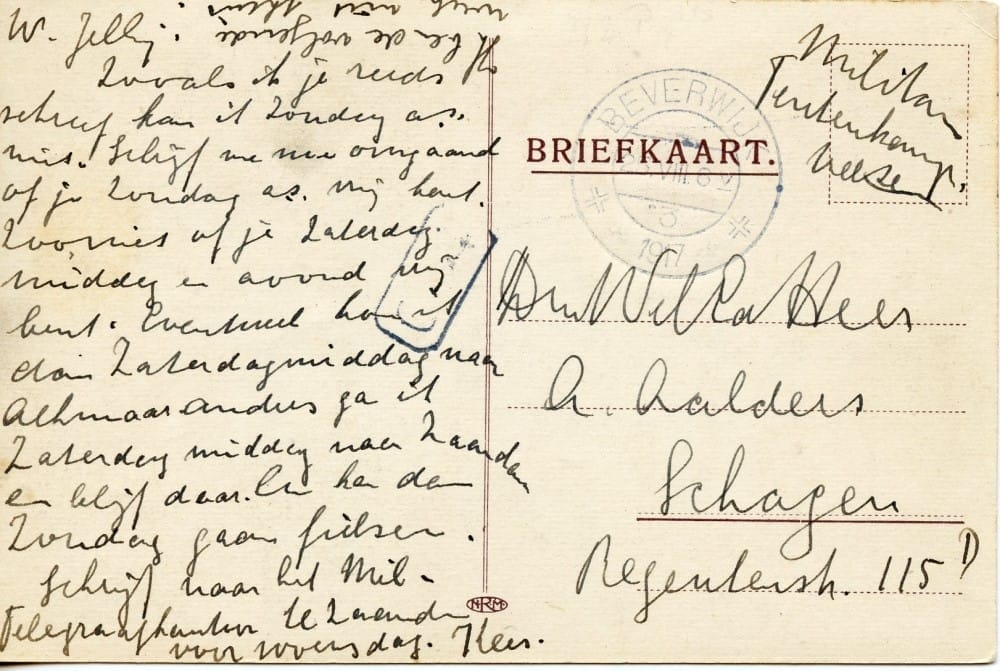 W. Jelly!
Zooals ik je reeds
schreef kan ik Zondag a.s.
niet. Schrijf me nu omgaand
of je Zondag as. vrij bent.
Zooniet of je Zaterdag
middag en avond vrij
bent. Eventueel kom ik
dan Zaterdagmiddag naar
Alkmaar anders ga ik
Zaterdag middag naar Zaandam
en blijf daar. En kan dan
Zondag gaan fietsen.
Schrijf naar het Mil-
Telegraafkantoor te Zaandam
voor woensdag. Kees.
Ik ben de volgende
week niet thuis
BRIEFKAART.
BEVERWIJK
VIII. 6
1917
Militair
Tentenkamp
Velsen.
Hees
A. Aalders
Schagen
Regenterstr. 115 D
NRM